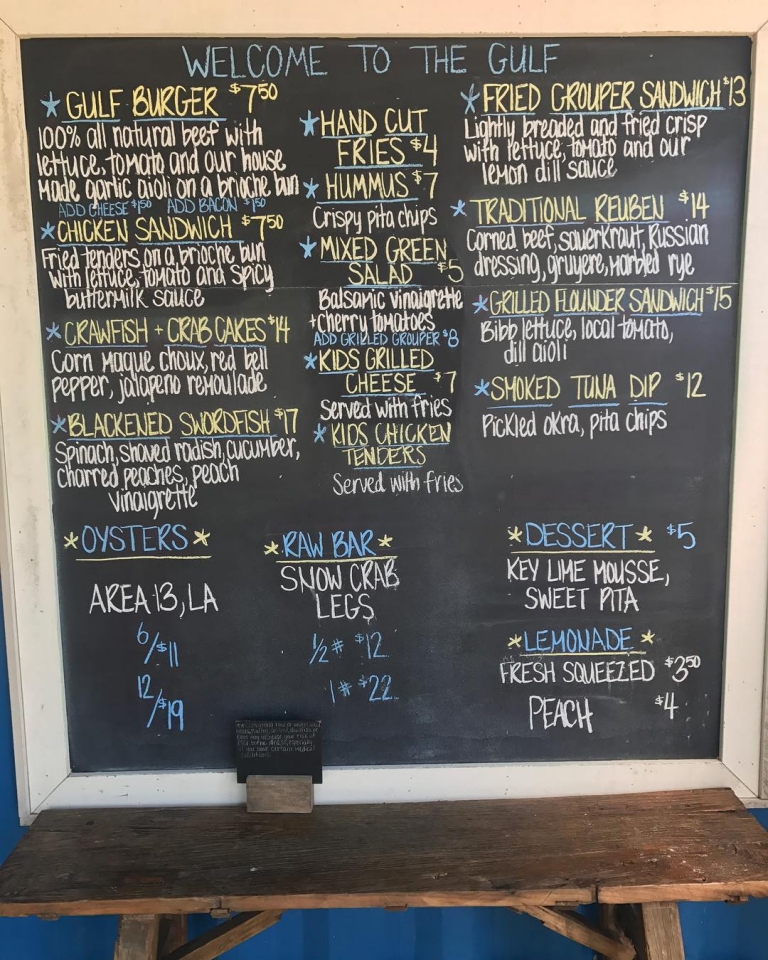 WELCOME TO THE GULF
* GULF BURGER $7.50
100% all natural beef with
lettuce, tomato and our house
made garlic aioli on a brioche bun
ADD CHEESE $1.50 ADD BACON $1.50
* CHICKEN SANDWICH $7.50
Fried tenders on a brioche bun
with lettuce, tomato and spicy
buttermilk sauce
* CRAWFISH + CRAB CAKES $14
Corn maque choux, red bell
pepper, jalapeno remoulade
* BLACKENED SWORDFISH $17
Spinach, shaved radish, cucumber,
charred peaches, peach
vinaigrette
* HAND CUT
FRIES $4
* HUMMUS $7
Crispy pita chips
* MIXED GREEN
SALAD $5
Balsamic vinaigrette
+ cherry tomatoes
ADD GRILLED GROUPER $8
* KIDS GRILLED
CHEESE $7
Served with fries
* KIDS CHICKEN
TENDERS
Served with fries
* FRIED GROUPER SANDWICH $13
Lightly breaded and fried crisp
with lettuce, tomato and our
lemon dill sauce
* TRADITIONAL REUBEN $14
Corned beef, sauerkraut, Russian
dressing, gruyere, marbled rye
* GRILLED FLOUNDER SANDWICH $15
Bibb lettuce, local tomato,
dill aioli
* SMOKED TUNA DIP $12
Pickled okra, pita chips
* OYSTERS *
AREA 13, LA
6/$11
12/$19
* RAW BAR *
SNOW CRAB
LEGS
1/2# $12
1# $22
* DESSERT * $5
KEY LIME MOUSSE,
SWEET PITA
* LEMONADE *
FRESH SQUEEZED $3.50
PEACH $4